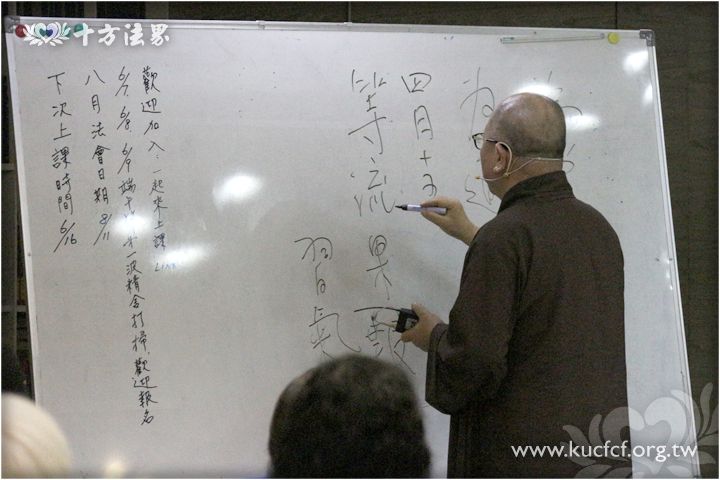 十方法界
四月十五
等流果報
習氣
歡迎加入：一起來上課 Line
6/7. 6/8. 6/9 端午
第一波精舍打掃, 歡迎報名
八月法會日期 8/11
下次上課時間 6/16
www.kucfcf.org.tw